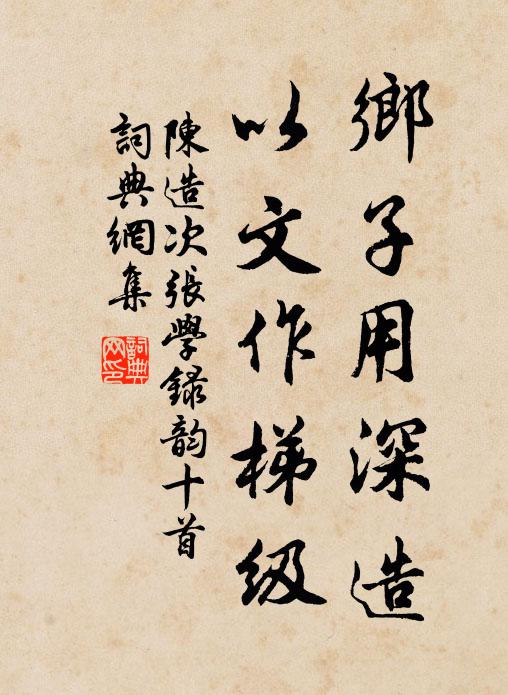 鄉子用深造
以文作梯級
陳造次張學録韵十首
詞典網集
詞典網印